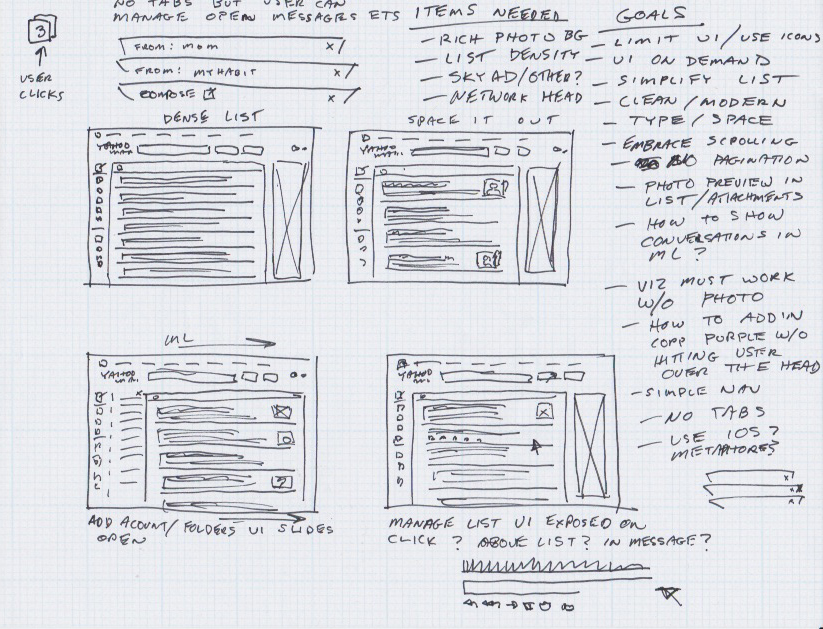 NO TABS BUT USER CAN
MANAGE OPEN MESSAGES ETS
3
USER
CLICKS
FROM: MOM X
FROM: MYHABIT X
COMPOSE X
ITEMS NEEDED
- RICH PHOTO BG
- LIST DENSITY
- SKY AD/OTHER?
- NETWORK HEAD
GOALS
- LIMIT UI/USE ICONS
- UI ON DEMAND
- SIMPLIFY LIST
- CLEAN/MODERN
- TYPE/SPACE
- EMBRACE SCROLLING
- NO PAGINATION
- PHOTO PREVIEW IN
LIST/ATTACHMENTS
- HOW TO SHOW
CONVERSATIONS IN
ML?
- VIZ MUST WORK
W/O PHOTO
- HOW TO ADD IN
CORP PURPLE W/O
HITING USER
OVER THE HEAD
- SIMPLE NAV
- NO TABS
- USE IOS?
METAPHORES
X
X
X
DENSE LIST
YAHOO
MAIL
SPACE IT OUT
YAHOO
MAIL
ML
YAHOO
MAIL
X
ADD ACOUNT/FOLDERS UI SLIDES
OPEN
YAHOO
MAIL
MANAGE LIST UI EXPOSED ON
CLICK? ABOVE LIST? IN MESSAGE?